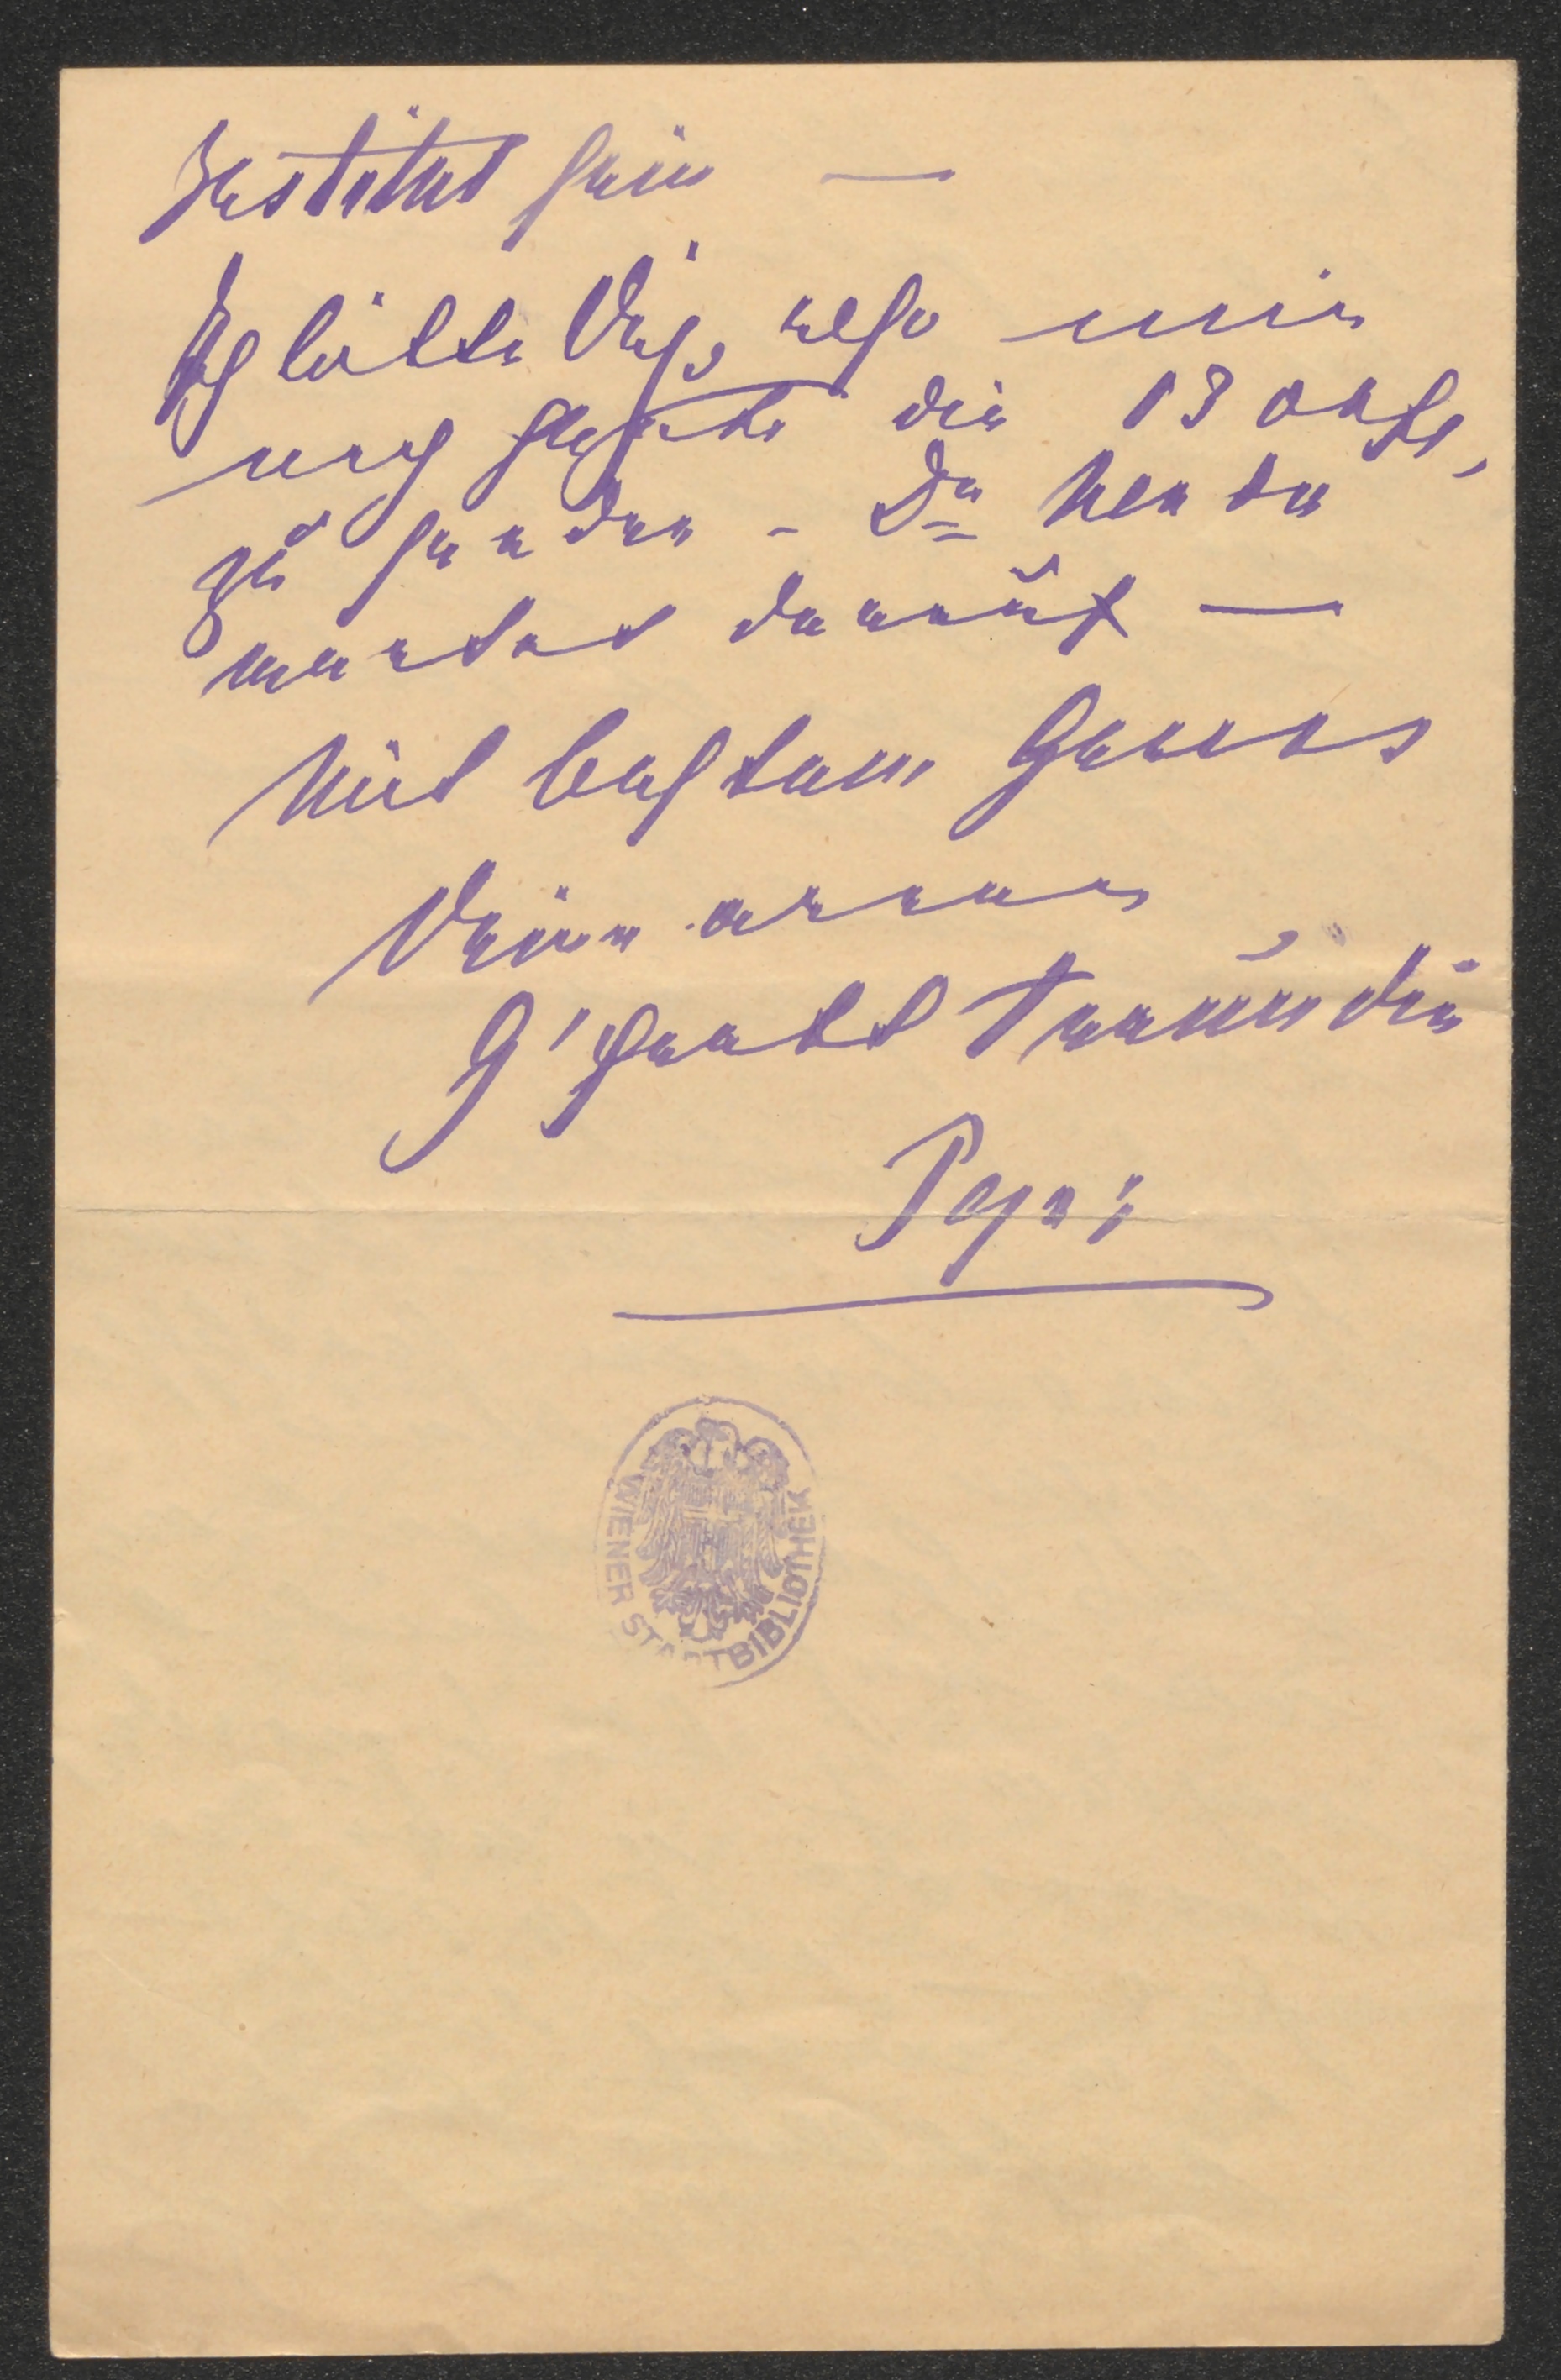 Institut sein —
Ich bitte Dich, also mir
noch heute die 13
zu senden - Dr
wartet darauf —
Mit bestem Gruss
Deine arme
Freundin
Pepi
WIENER STADTBIBLIOTHEK